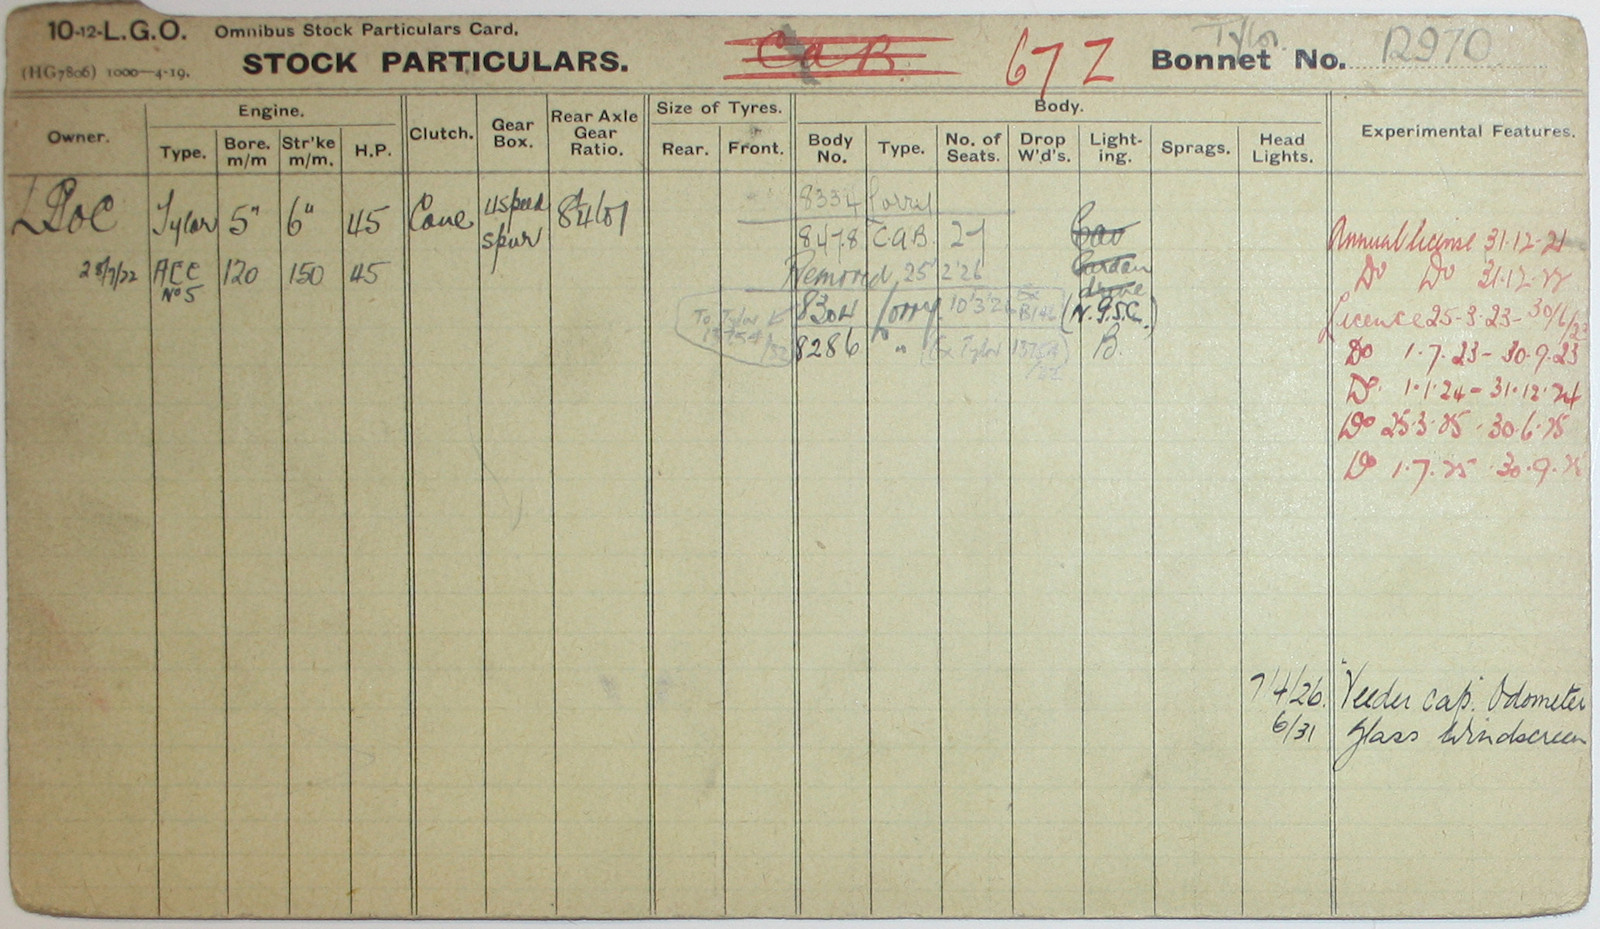 10-12-L.G.O. Omnibus Stock Particulars Card,
(HG7806) 1000—4-19.
STOCK PARTICULARS.
C.A.B. 67Z
Tylor
Bonnet No. 12970
Owner. Engine. Clutch. Gear Box. Rear Axle Gear Ratio. Size of Tyres. Body. Experimental Features.
Type. Bore. m/m Str'ke m/m. H.P. Rear. Front. Body No. Type. No. of Seats. Drop W'd's. Light-ing. Sprags. Head Lights.
8334 Lorry
LGOC Tylor 5" 6" 45 Cone 4 speed spur
8478 C.A.B. 27 Cav
Annual license 31-12-21
28/7/22 AEC No 5 120 150 45
Removed 25/2/26
Cardan drive
Do Do 31-12-22
To Tylor
8304 Lorry 10/3/26 Ex B146 (N.G.S.C.)
Licence 25-3-23 - 30/6/23
8286 " (Ex Tylor B.
Do 1-7-23 - 30-9-23
Do 1-1-24 - 31-12-24
Do 25-3-25 - 30-6-25
Do 1-7-25 - 30-9-25
7/4/26. Veeder cap. Odometer
6/31 Glass Windscreen